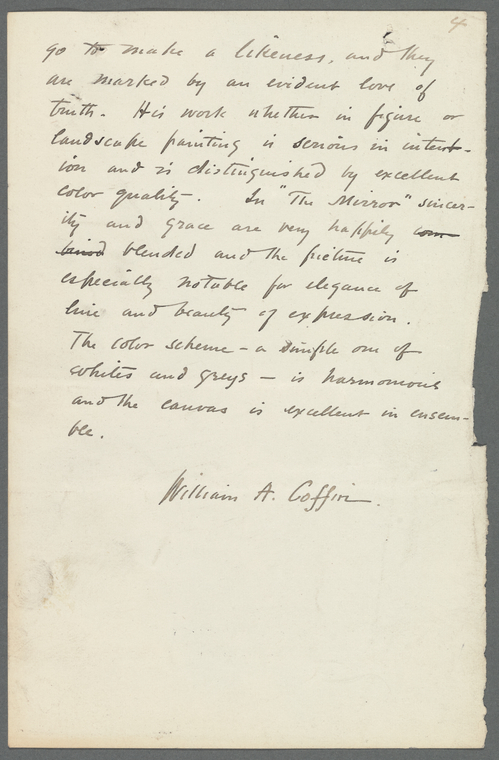 4
go to make a likeness, and they
are marked by an evident love of
truth. His work whether in figure or
landscape painting is serious in intent-
ion and is distinguished by excellent
color quality. In "The Mirror" sincer-
ity and grace are very happily com-
bined blended and the picture is
especially notable for elegance of
line and beauty of expression.
The color scheme – a simple one of
whites and greys – is harmonious
and the canvas is excellent in ensem-
ble.
William A. Coffin.